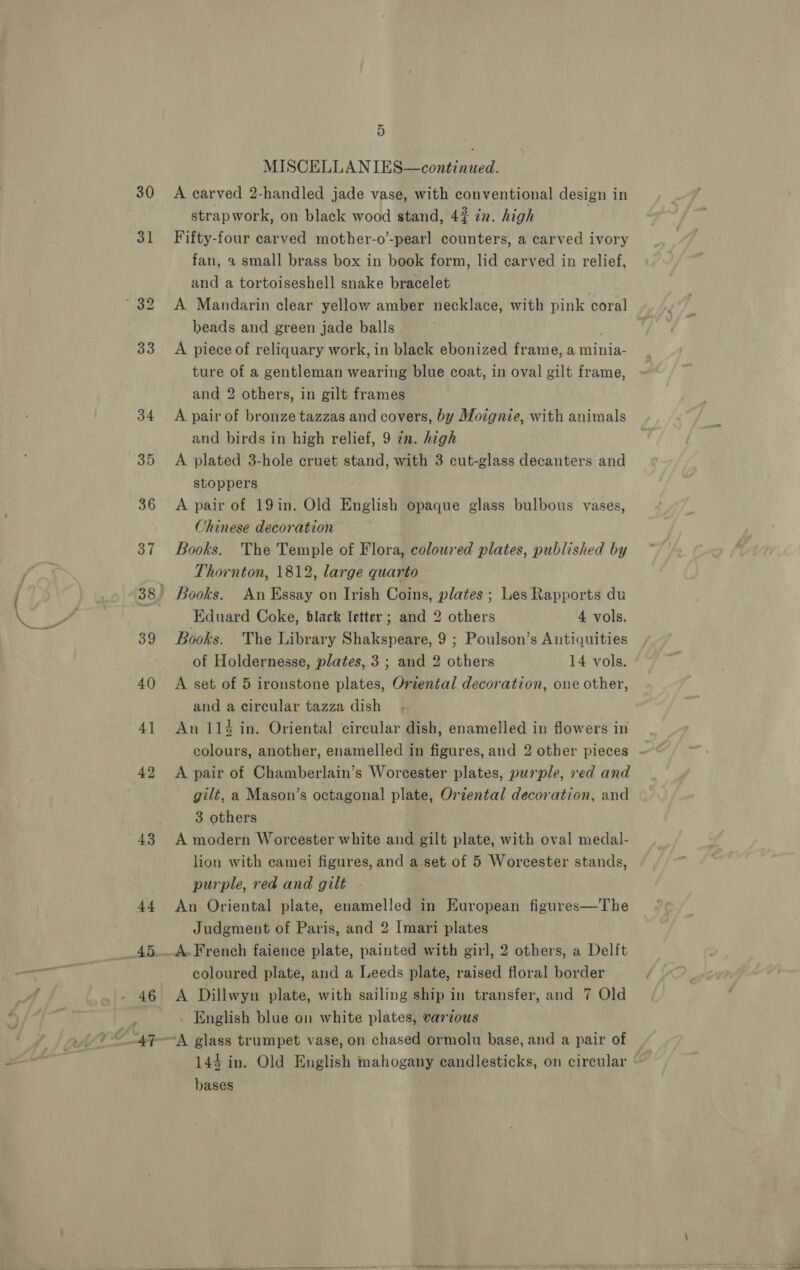 5
MISCELLANIES—continued.
30 A carved 2-handled jade vase, with conventional design in
strapwork, on black wood stand, 4¾ in. high
31 Fifty-four carved mother-o'-pearl counters, a carved ivory
fan, a small brass box in book form, lid carved in relief,
and a tortoiseshell snake bracelet
32 A Mandarin clear yellow amber necklace, with pink coral
beads and green jade balls
33 A piece of reliquary work, in black ebonized frame, a minia-
ture of a gentleman wearing blue coat, in oval gilt frame,
and 2 others, in gilt frames
34 A pair of bronze tazzas and covers, by Moignie, with animals
and birds in high relief, 9 in. high
35 A plated 3-hole cruet stand, with 3 cut-glass decanters and
stoppers
36 A pair of 19in. Old English opaque glass bulbous vases,
Chinese decoration
37 Books. The Temple of Flora, coloured plates, published by
Thornton, 1812, large quarto
38 Books. An Essay on Irish Coins, plates ; Les Rapports du
Eduard Coke, black letter ; and 2 others 4 vols.
39 Books. The Library Shakspeare, 9 ; Poulson's Antiquities
of Holdernesse, plates, 3 ; and 2 others 14 vols.
40 A set of 5 ironstone plates, Oriental decoration, one other,
and a circular tazza dish
41 An 11½ in. Oriental circular dish, enamelled in flowers in
colours, another, enamelled in figures, and 2 other pieces
42 A pair of Chamberlain's Worcester plates, purple, red and
gilt, a Mason's octagonal plate, Oriental decoration, and
3 others
43 A modern Worcester white and gilt plate, with oval medal-
lion with camei figures, and a set of 5 Worcester stands,
purple, red and gilt
44 An Oriental plate, enamelled in European figures—The
Judgment of Paris, and 2 Imari plates
45 A French faience plate, painted with girl, 2 others, a Delft
coloured plate, and a Leeds plate, raised floral border
46 A Dillwyn plate, with sailing ship in transfer, and 7 Old
English blue on white plates, various
47 A glass trumpet vase, on chased ormolu base, and a pair of
14½ in. Old English mahogany candlesticks, on circular
bases